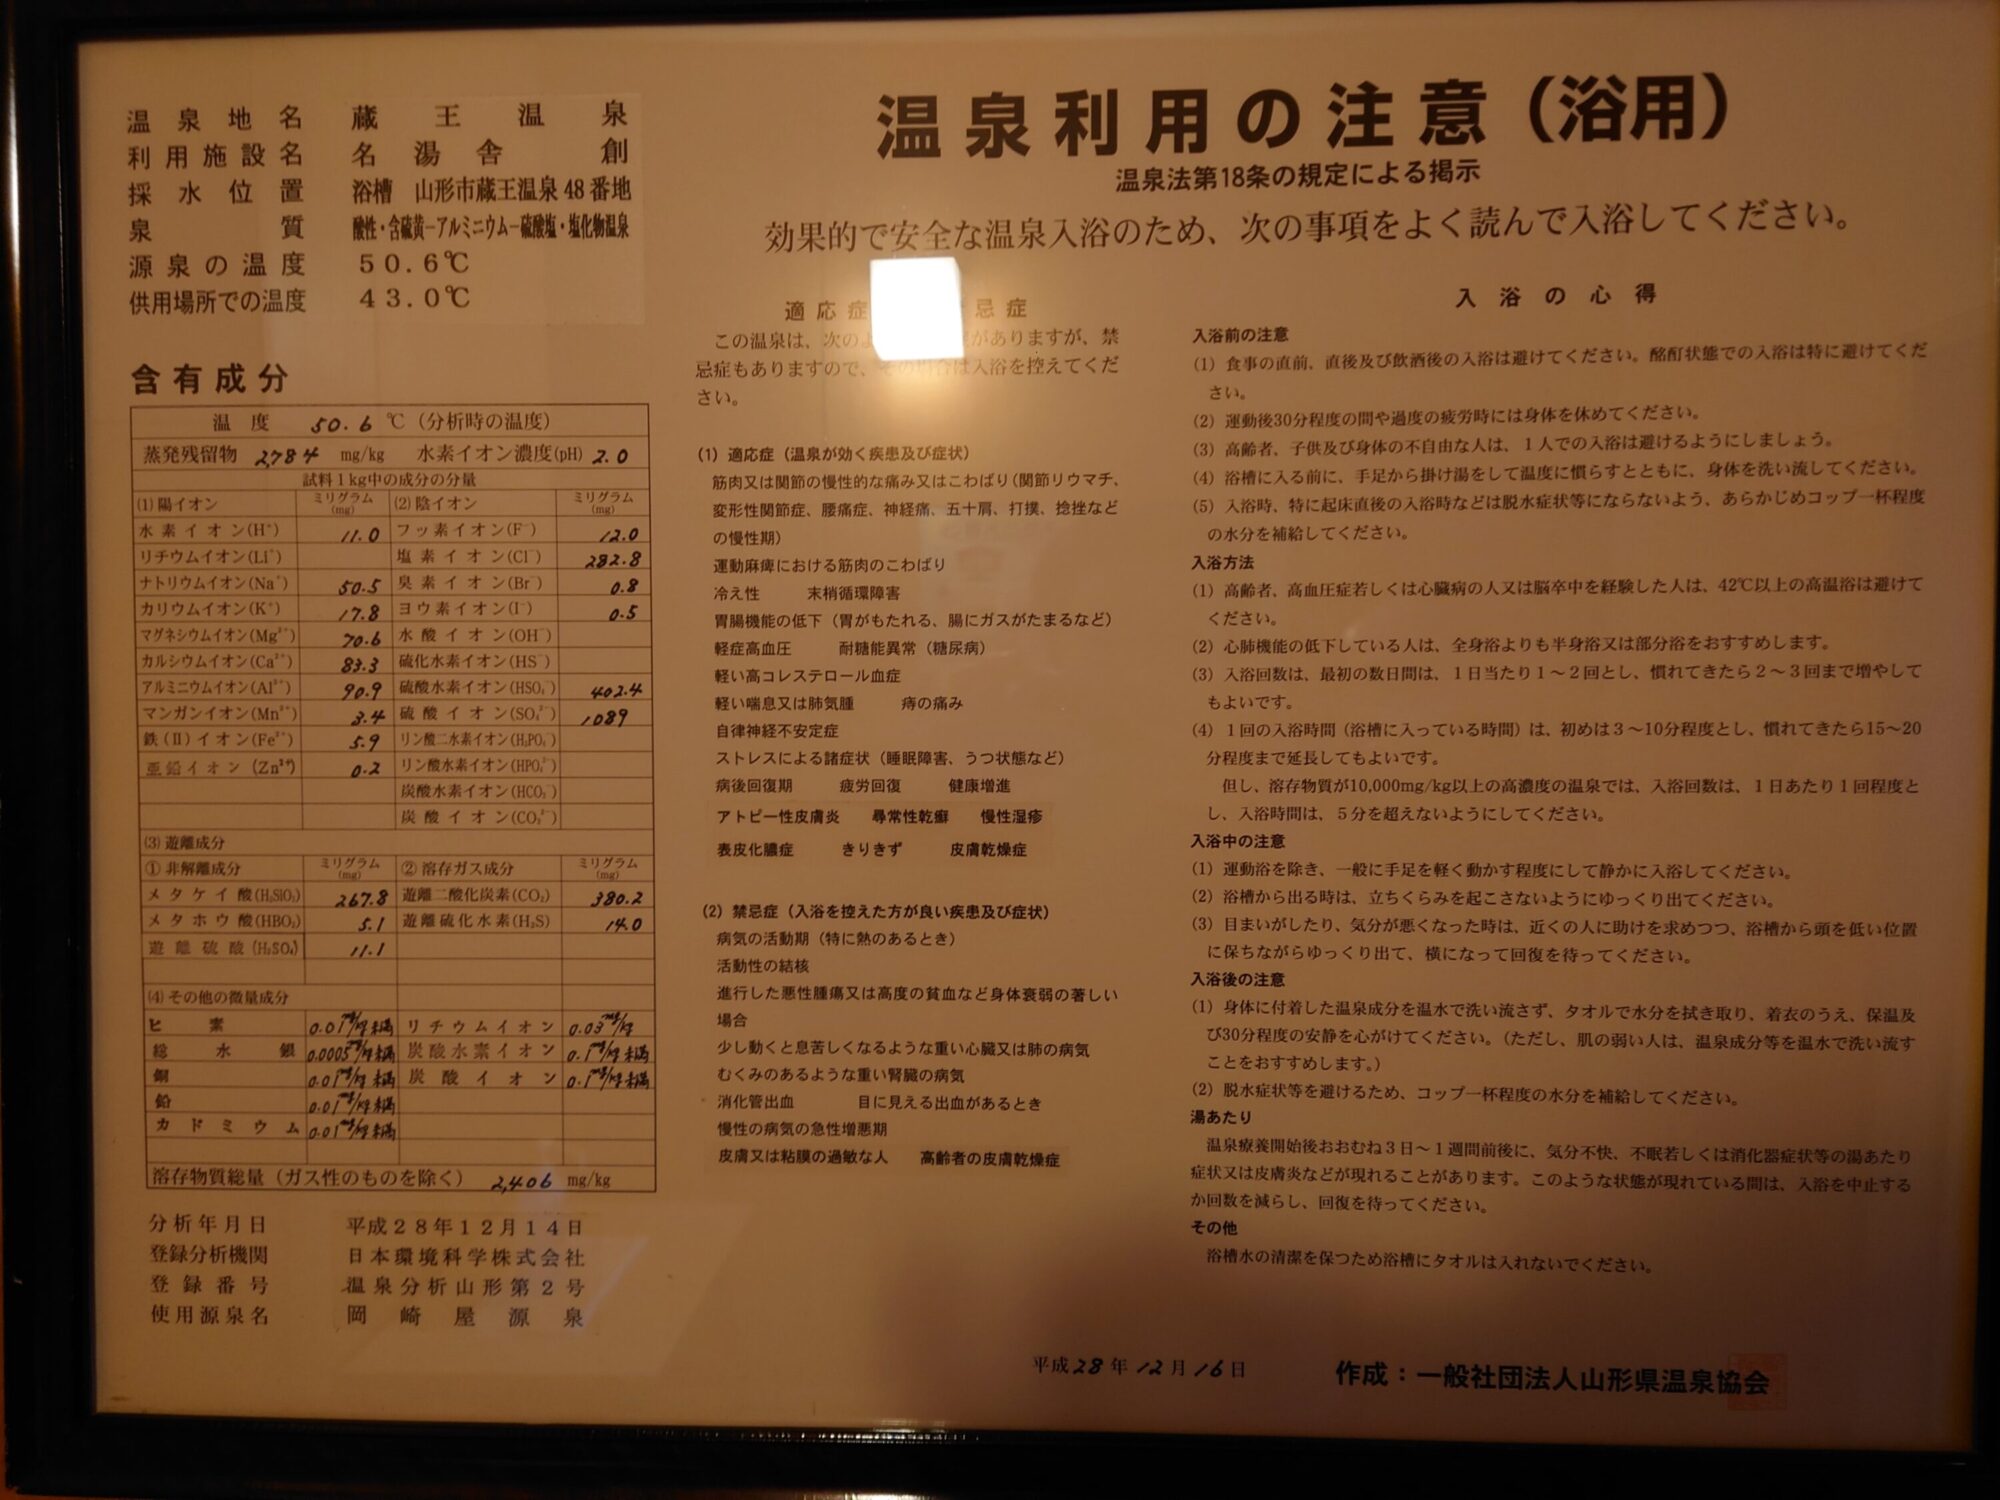 温泉利用の注意（浴用）
温泉法第18条の規定による掲示
効果的で安全な温泉入浴のため、次の事項をよく読んで入浴してください。
温泉地名 蔵王温泉
利用施設名 名湯舎 創
採水位置 浴槽 山形市蔵王温泉48番地
泉質 酸性・含硫黄-アルミニウム-硫酸塩・塩化物温泉
源泉の温度 50.6℃
供用場所での温度 43.0℃
含有成分
温度 50.6 ℃（分析時の温度）
蒸発残留物 2,784 mg/kg 水素イオン濃度(pH) 2.0
試料1kg中の成分の分量
(1)陽イオン ミリグラム(mg) (2)陰イオン ミリグラム(mg)
水素イオン(H⁺) 11.0 フッ素イオン(F⁻) 12.0
リチウムイオン(Li⁺) 塩素イオン(Cl⁻) 282.8
ナトリウムイオン(Na⁺) 50.5 臭素イオン(Br⁻) 0.8
カリウムイオン(K⁺) 17.8 ヨウ素イオン(I⁻) 0.5
マグネシウムイオン(Mg²⁺) 70.6 水酸イオン(OH⁻)
カルシウムイオン(Ca²⁺) 83.3 硫化水素イオン(HS⁻)
アルミニウムイオン(Al³⁺) 90.9 硫酸水素イオン(HSO₄⁻) 402.4
マンガンイオン(Mn²⁺) 3.4 硫酸イオン(SO₄²⁻) 1089
鉄(II)イオン(Fe²⁺) 5.9 リン酸二水素イオン(H₂PO₄⁻)
亜鉛イオン(Zn²⁺) 0.2 リン酸水素イオン(HPO₄²⁻)
炭酸水素イオン(HCO₃⁻)
炭酸イオン(CO₃²⁻)
(3)遊離成分
①非解離成分 ミリグラム(mg) ②溶存ガス成分 ミリグラム(mg)
メタケイ酸(H₂SiO₃) 267.8 遊離二酸化炭素(CO₂) 380.2
メタホウ酸(HBO₂) 5.1 遊離硫化水素(H₂S) 14.0
遊離硫酸(H₂SO₄) 11.1
(4)その他の微量成分
ヒ素 0.01mg/kg未満 リチウムイオン 0.03mg/kg
総水銀 0.0005mg/kg未満 炭酸水素イオン 0.1mg/kg未満
銅 0.01mg/kg未満 炭酸イオン 0.1mg/kg未満
鉛 0.01mg/kg未満
カドミウム 0.01mg/kg未満
溶存物質総量（ガス性のものを除く） 2,406 mg/kg
分析年月日 平成28年12月14日
登録分析機関 日本環境科学株式会社
登録番号 温泉分析山形第2号
使用源泉名 岡崎屋源泉
適応症 忌症
この温泉は、次の がありますが、禁
忌症もありますので、その場合は入浴を控えてくだ
さい。
(1) 適応症（温泉が効く疾患及び症状）
筋肉又は関節の慢性的な痛み又はこわばり（関節リウマチ、
変形性関節症、腰痛症、神経痛、五十肩、打撲、捻挫など
の慢性期）
運動麻痺における筋肉のこわばり
冷え性 末梢循環障害
胃腸機能の低下（胃がもたれる、腸にガスがたまるなど）
軽症高血圧 耐糖能異常（糖尿病）
軽い高コレステロール血症
軽い喘息又は肺気腫 痔の痛み
自律神経不安定症
ストレスによる諸症状（睡眠障害、うつ状態など）
病後回復期 疲労回復 健康増進
アトピー性皮膚炎 尋常性乾癬 慢性湿疹
表皮化膿症 きりきず 皮膚乾燥症
(2) 禁忌症（入浴を控えた方が良い疾患及び症状）
病気の活動期（特に熱のあるとき）
活動性の結核
進行した悪性腫瘍又は高度の貧血など身体衰弱の著しい
場合
少し動くと息苦しくなるような重い心臓又は肺の病気
むくみのあるような重い腎臓の病気
消化管出血 目に見える出血があるとき
慢性の病気の急性増悪期
皮膚又は粘膜の過敏な人 高齢者の皮膚乾燥症
入浴の心得
入浴前の注意
(1) 食事の直前、直後及び飲酒後の入浴は避けてください。酩酊状態での入浴は特に避けてくだ
さい。
(2) 運動後30分程度の間や過度の疲労時には身体を休めてください。
(3) 高齢者、子供及び身体の不自由な人は、1人での入浴は避けるようにしましょう。
(4) 浴槽に入る前に、手足から掛け湯をして温度に慣らすとともに、身体を洗い流してください。
(5) 入浴時、特に起床直後の入浴時などは脱水症状等にならないよう、あらかじめコップ一杯程度
の水分を補給してください。
入浴方法
(1) 高齢者、高血圧症若しくは心臓病の人又は脳卒中を経験した人は、42℃以上の高温浴は避けて
ください。
(2) 心肺機能の低下している人は、全身浴よりも半身浴又は部分浴をおすすめします。
(3) 入浴回数は、最初の数日間は、1日当たり1～2回とし、慣れてきたら2～3回まで増やして
もよいです。
(4) 1回の入浴時間（浴槽に入っている時間）は、初めは3～10分程度とし、慣れてきたら15～20
分程度まで延長してもよいです。
但し、溶存物質が10,000mg/kg以上の高濃度の温泉では、入浴回数は、1日あたり1回程度と
し、入浴時間は、5分を超えないようにしてください。
入浴中の注意
(1) 運動浴を除き、一般に手足を軽く動かす程度にして静かに入浴してください。
(2) 浴槽から出る時は、立ちくらみを起こさないようにゆっくり出てください。
(3) 目まいがしたり、気分が悪くなった時は、近くの人に助けを求めつつ、浴槽から頭を低い位置
に保ちながらゆっくり出て、横になって回復を待ってください。
入浴後の注意
(1) 身体に付着した温泉成分を温水で洗い流さず、タオルで水分を拭き取り、着衣のうえ、保温及
び30分程度の安静を心がけてください。（ただし、肌の弱い人は、温泉成分等を温水で洗い流す
ことをおすすめします。）
(2) 脱水症状等を避けるため、コップ一杯程度の水分を補給してください。
湯あたり
温泉療養開始後おおむね3日～1週間前後に、気分不快、不眠若しくは消化器症状等の湯あたり
症状又は皮膚炎などが現れることがあります。このような状態が現れている間は、入浴を中止する
か回数を減らし、回復を待ってください。
その他
浴槽水の清潔を保つため浴槽にタオルは入れないでください。
平成28年12月16日
作成：一般社団法人山形県温泉協会